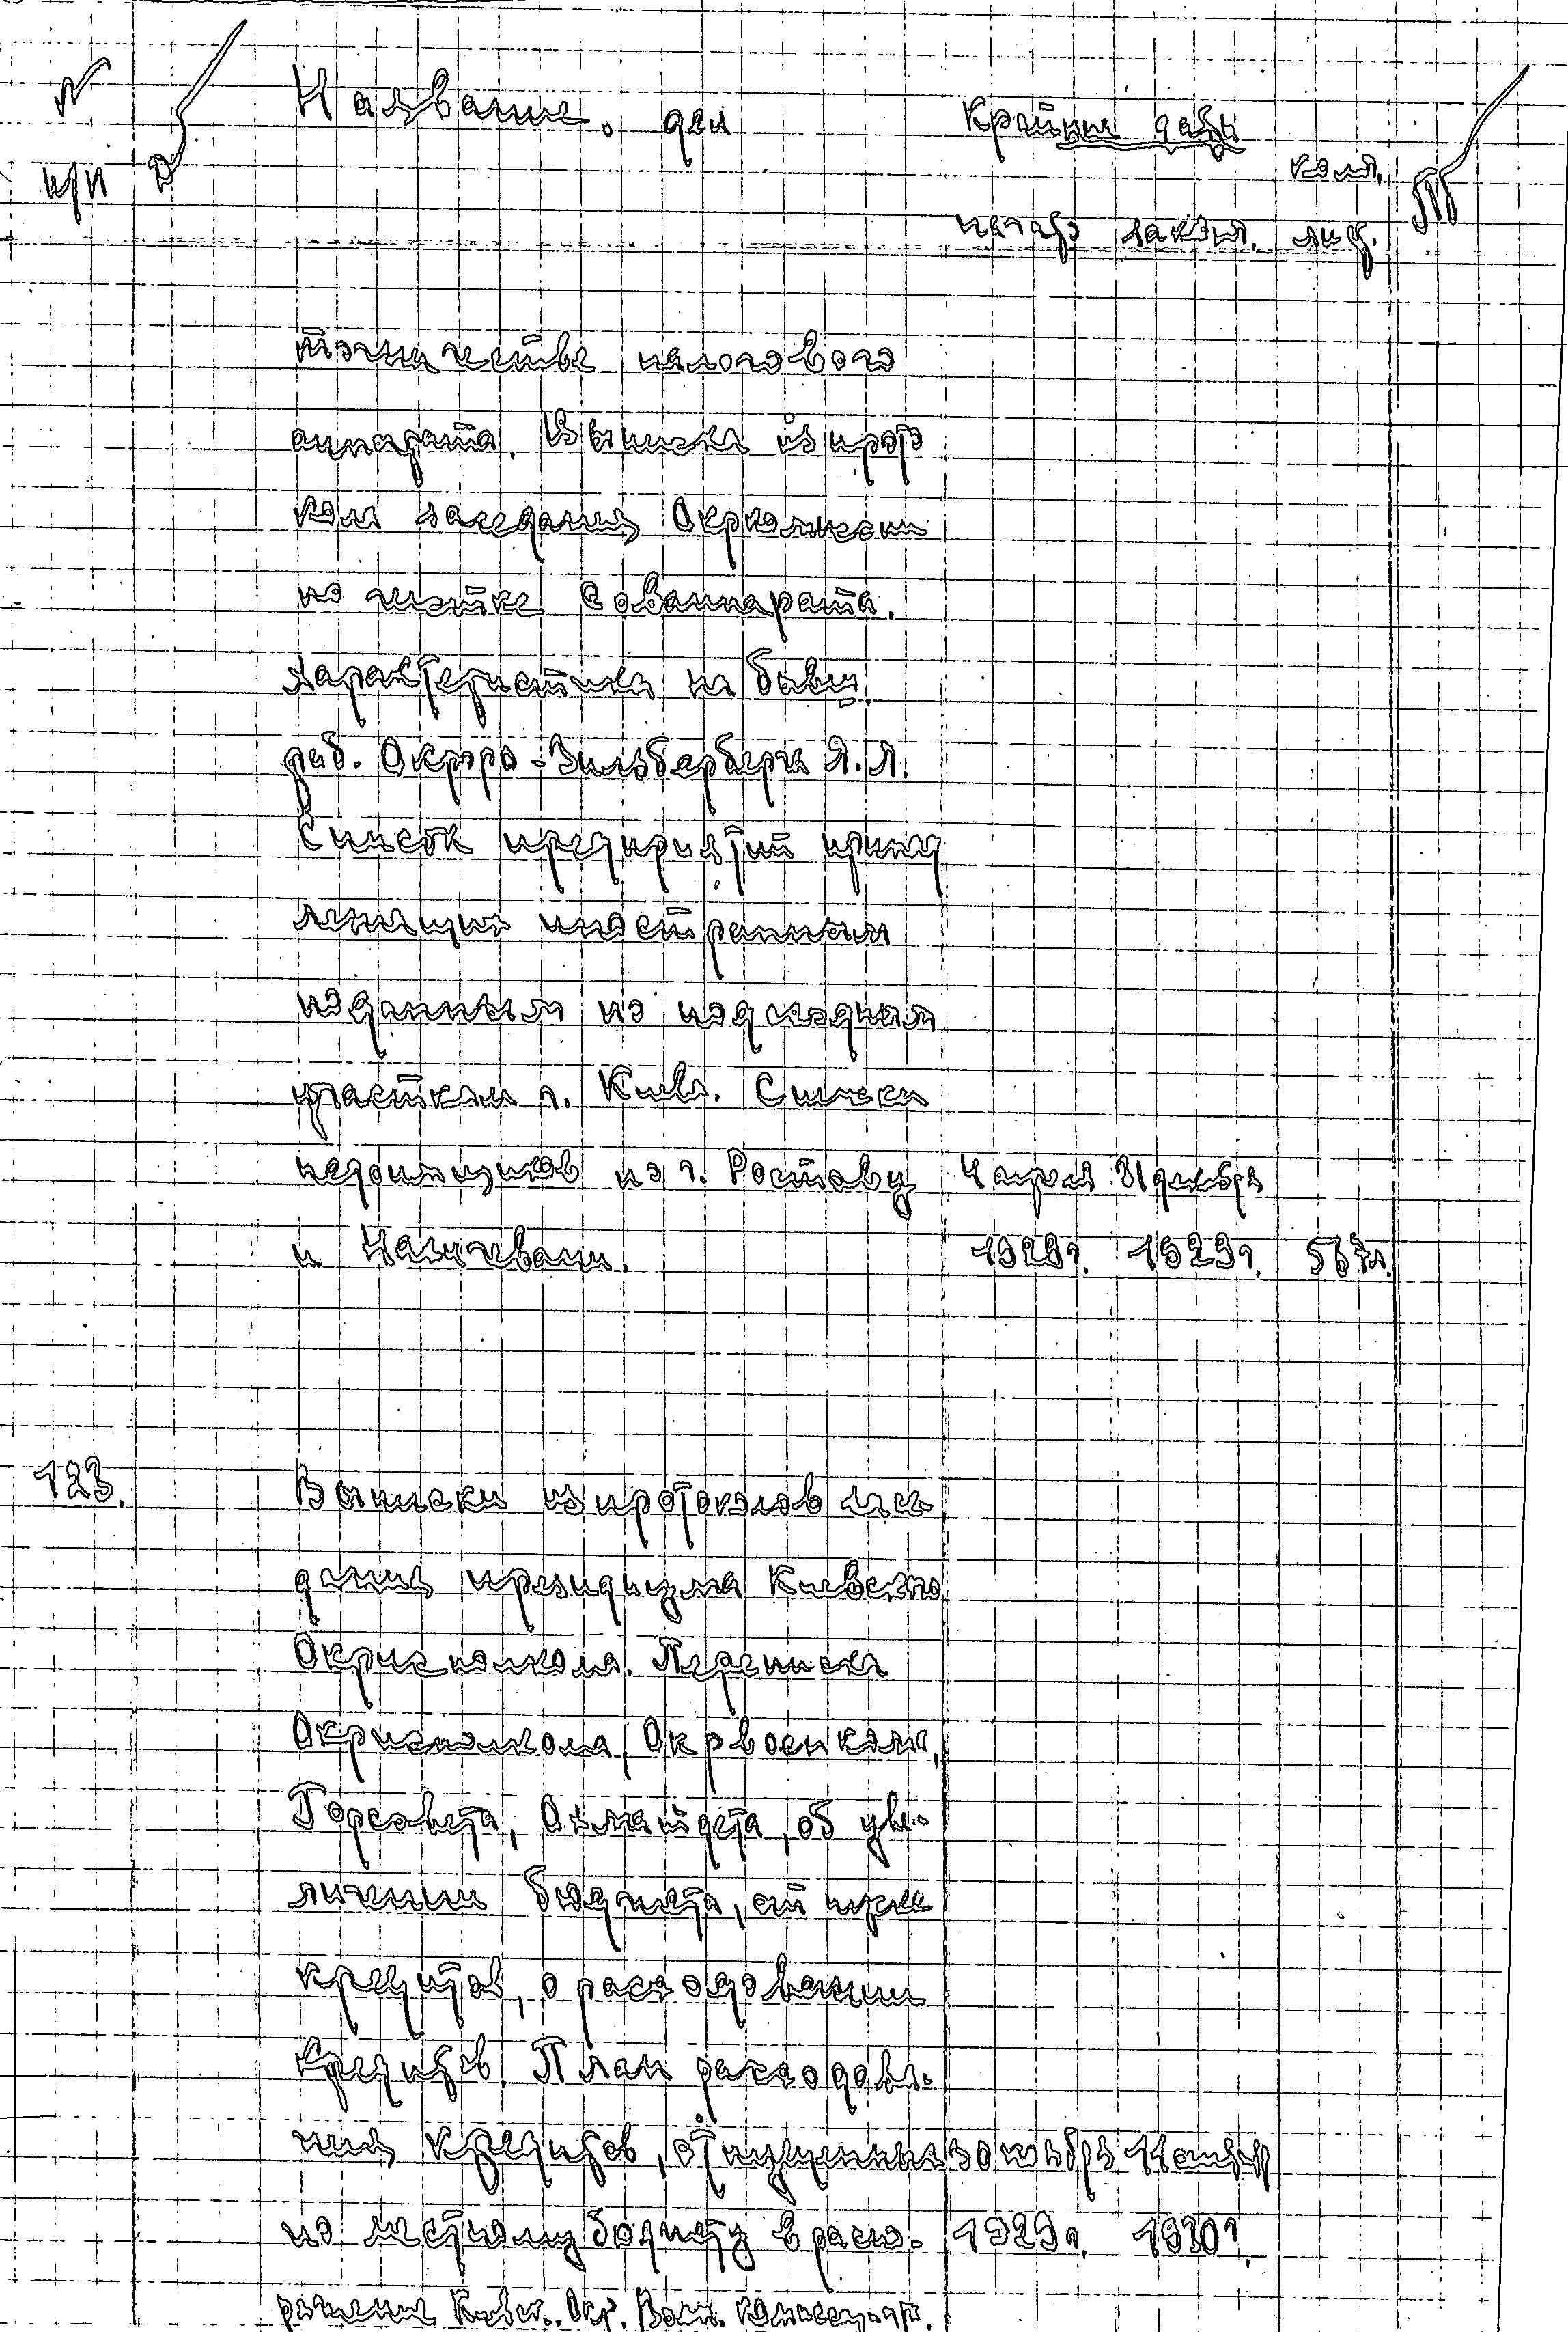 № Название дел Крайние даты
п/п кол.
начало законч. лист.
точничестве налогового
аппарата. Выписка из прото
кола заседания Окркомиссии
по чистке Совашпарата.
Характеристика на бывш.
раб. Окрфо - Зильберберга Я.Л.
Список предприятий принад
лежащих иностранным
подданным по подоходным
участкам г. Киева. Списки
недоимщиков по г. Ростову 4 апреля 31 декабря
и Нахичевани. 1929г. 1929г. 567л.
123. Выписки из протоколов засе-
дания президиума Киевского
Окрисполкома. Переписка
Окрисполкома, Окрвоенкома,
Горсовета, об уве-
личении бюджета, отпуске
кредитов, о расходовании
кредитов. План расходова-
ния кредитов, отпущенных
по местному бюджету в распо- 1929г. 1930г.
ряжение Киевск. Окр. Воен. Комиссариат.